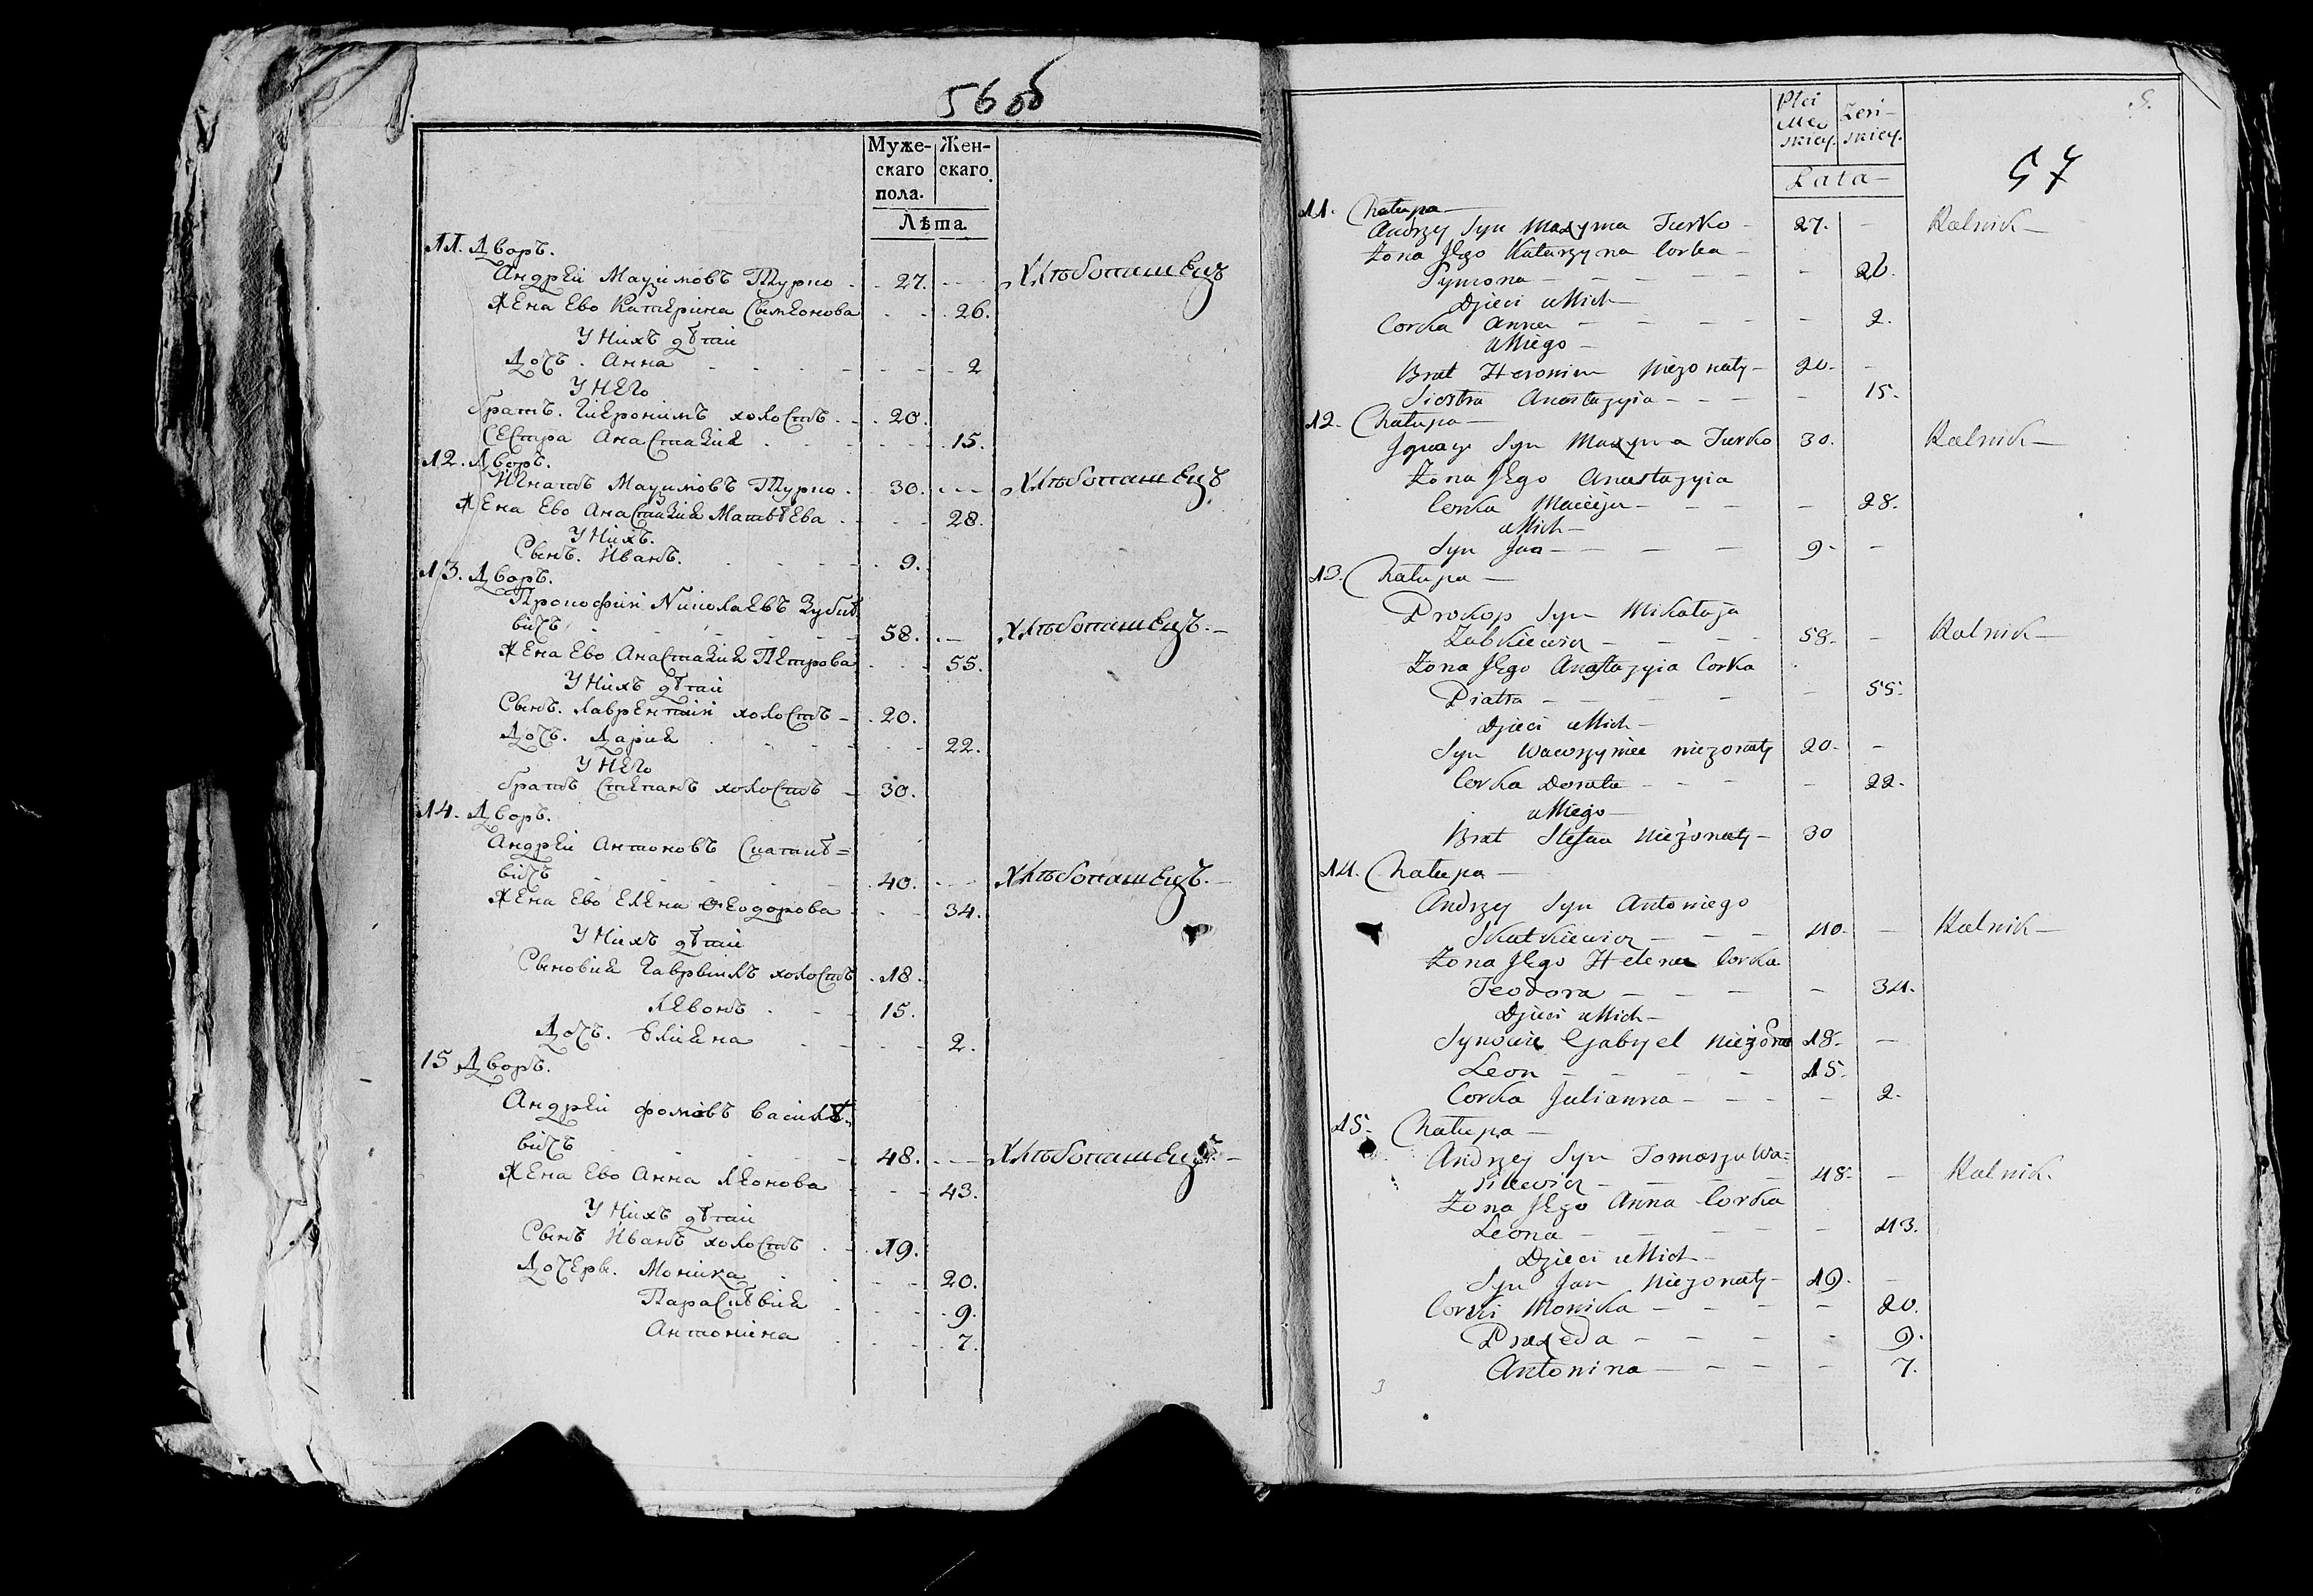 56 об
Муже- Жен-
скаго скаго
пола.
Лѣта.
11. Дворъ.
Андрей Мацимовъ Турко - 27. - Хлѣбопашецъ
Жена Ево Катерина Сымеонова - 26.
У Нихъ дѣтей
Дочь. Анна - 2
У Него
братъ. Гиеронимъ холостъ - 20.
Сестра Анастазия - 15.
12. Дворъ.
Игнатъ Мацимовъ Турко - 30. - Хлѣбопашецъ
Жена Ево Анастазия Матвѣева - 28.
У Нихъ.
Сынъ. Иванъ. - 9.
13. Дворъ.
Прокофий Николаевъ Зубке
вичъ - 58. - Хлѣбопашецъ. -
Жена Ево Анастазия Петрова - 55.
У Нихъ дѣтей
Сынъ. Лаврентий холостъ - 20.
Дочь. Дария - 22.
У Него
братъ Степанъ холостъ - 30.
14. Дворъ.
Андрей Антоновъ Скатке=
вичъ - 40. - Хлѣбопашецъ. -
Жена Ево Елена Ѳеодорова - 34.
У Нихъ дѣтей
Сыновия Гаврвилъ холостъ - 18.
Левонъ - 15.
Дочь. - 2.
15 Дворъ.
Андрей фомовъ Василѣ=
вичъ - 48. - Хлѣбопашецъ. -
Жена Ево Анна Леонова - 43.
У Нихъ дѣтей
Сынъ Иванъ холостъ - 19.
Дочери. Моника - 20.
Параскѣвия - 9.
Антонина - 7.
Płci Żeń-
Mę- skiey.
skiey.
Lata -
57
11. Chałupa -
Andrzy Syn Maxyma Turko - 27. - Rolnik -
Żona Jego Katarzyna Corka -
Symona - 26.
Dzieci u Nich -
Corka Anna - 2.
u Niego -
Brat Heronim Nieżonaty - 20. -
Siostra Anastazyia - 15.
12. Chałupa -
Ignacy Syn Maxyma Turko 30. Rolnik -
Żona Jego Anastazyia
Corka Macieja - 28.
u Nich -
Syn Jan - 9 -
13. Chałupa -
Prokop Syn Mikołaja
Zubkiewicz - 58. - Rolnik -
Żona Jego Anastazyia Corka
Piotra - 55.
Dzieci u Nich -
Syn Wawrzyniec nieżonaty 20. -
Corka Donata - 22.
u Niego -
Brat Stefan Nieżonaty - 30
14. Chałupa -
Andrzey Syn Antoniego
Skatkiewicz - 40. - Rolnik -
Żona Jego Helena Corka
Teodora - 34.
Dzieci u Nich -
Synowie Gabryel Nieżona 18. -
Leon - 15.
Corka Julianna - 2.
15. Chałupa -
Andrzej Syn Tomasza Wa=
silewicz - 48. - Rolnik.
Żona Jego Anna Corka
Leona - 43.
Dzieci u Nich -
Syn Jan Nieżonaty - 19. -
Corki Monika - 20.
Praxeda - 9.
Antonina - 7.